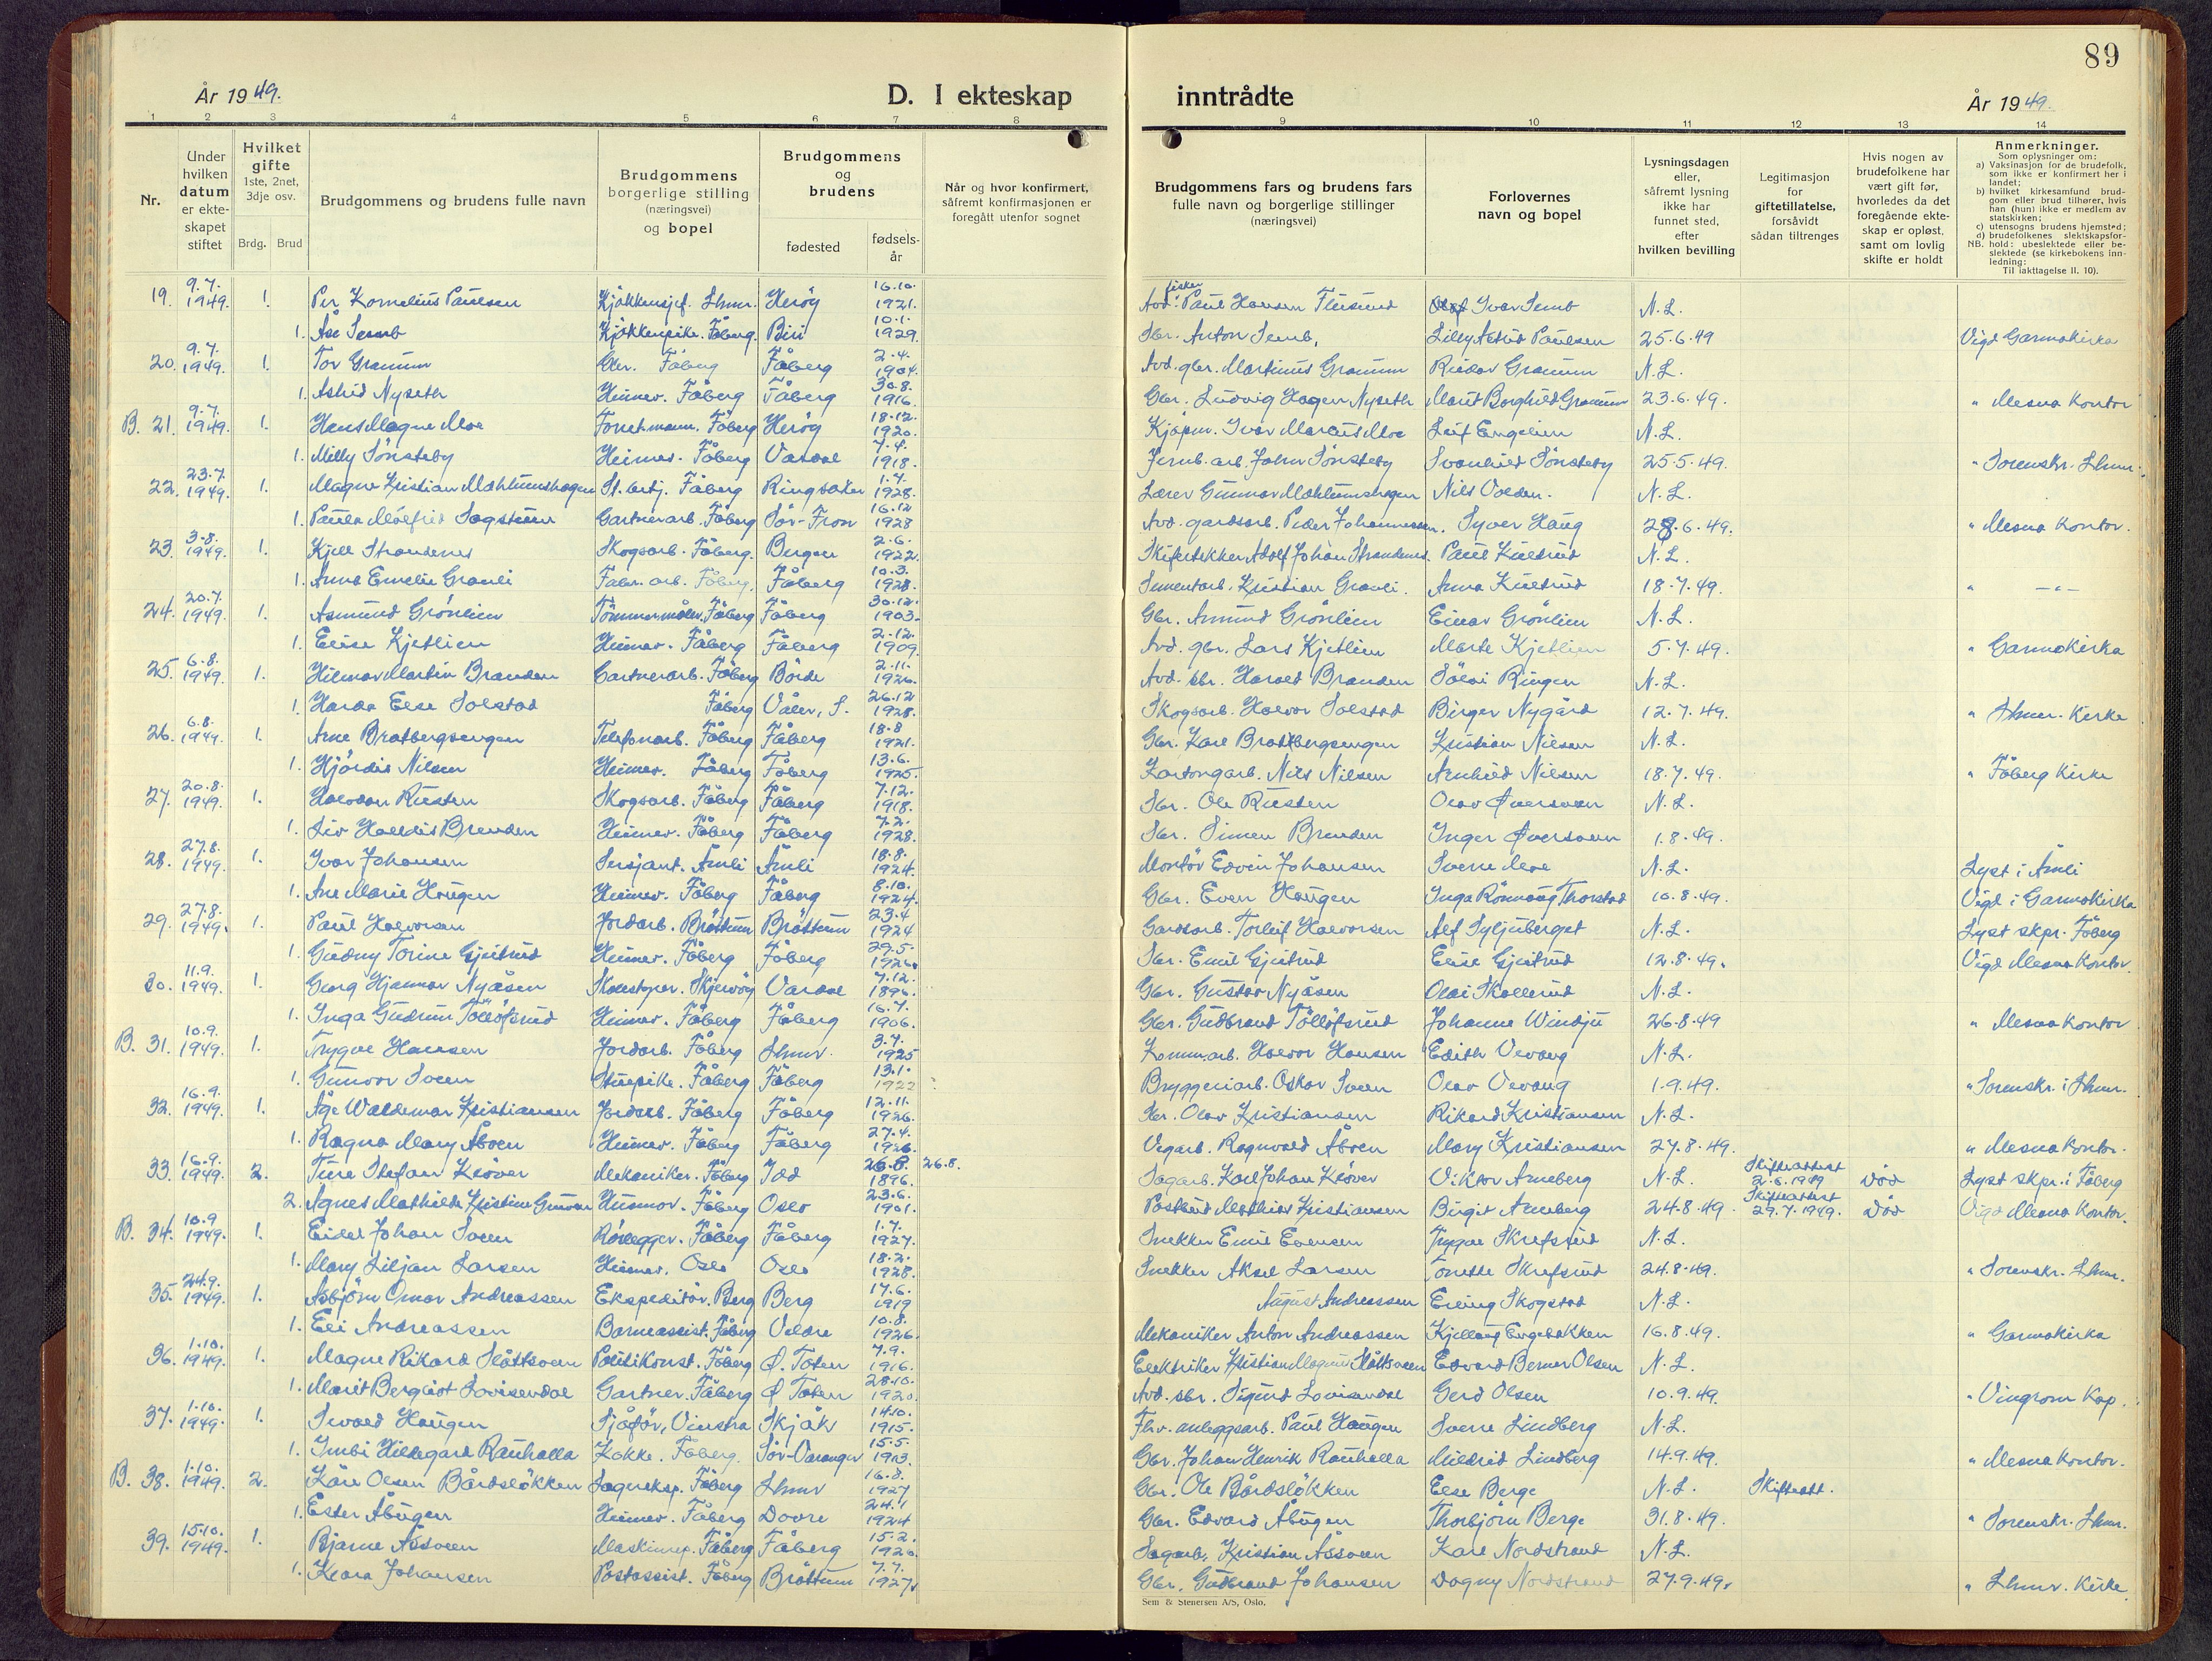 89
År 1949.
D. I ekteskap inntrådte
År 1949.
1 2 3 4 5 6 7 8 9 10 11 12 13 14
Nr.
Under hvilken datum er ekteskapet stiftet
Hvilket gifte 1ste, 2net, 3dje osv.
Brdg. Brud
Brudgommens og brudens fulle navn
Brudgommens borgerlige stilling (næringsvei) og bopel
Brudgommens og brudens
fødested
fødselsår
Når og hvor konfirmert, såfremt konfirmasjonen er foregått utenfor sognet
Brudgommens fars og brudens fars fulle navn og borgerlige stillinger (næringsvei)
Forlovernes navn og bopel
Lysningsdagen eller, såfremt lysning ikke har funnet sted, efter hvilken bevilling
Legitimasjon for giftetillatelse, forsåvidt sådan tiltrenges
Hvis nogen av brudefolkene har vært gift før, hvorledes da det foregående ekteskap er opløst, samt om lovlig skifte er holdt
Anmerkninger.
Som oplysninger om:
a) Vaksinasjon for de brudefolk, som ikke er konfirmert her i landet;
b) hvilket kirkesamfund brudgom eller brud tilhører, hvis han (hun) ikke er medlem av statskirken;
c) utensogns brudens hjemsted;
d) brudefolkenes slektskapsforhold: ubeslektede eller beslektede (se kirkebokens innledning: Til iakttagelse II. 10).
NB.
19. 9.7. 1949. 1. Per Kornelius Paulsen Kjøkkensjef. Lhmr. Herøy 16.10. 1921. Avd. fisker Paul Hansen Flusund Ivar Semb N.L.
1. Åse Semb Kjøkkenpike. Fåberg. Biri 10.1. 1929. Sbr. Anton Semb, Lilly Astrid Paulsen 25.6.49 Vigd Garmokirka
20. 9.7. 1949. 1. Tor Granum Gbr. Fåberg Fåberg 2.4. 1904. Avd. gbr. Martinus Granum Reidar Granum N.L.
1. Astrid Nyseth Heimev. Fåberg Fåberg 30.8. 1916. Gbr. Ludvig Hagen Nyseth Marit Borghild Granum 23.6.49. " Mesna Kontor
B. 21. 9.7. 1949. 1. Hans Magne Moe Forretn.mann. Fåberg Herøy 18.12. 1920. Kjøpm. Ivar Marius Moe Leif Engelien N.L.
1. Milly Sønsteby Heimev. Fåberg Vardal 7.4. 1918. Jernb.arb. John Sønsteby Svanhild Sønsteby 25.5.49. " Sorenskr. Lhmr.
22. 23.7 1949. 1. Magne Kristian Mæhlumshagen St.betj. Fåberg Ringsaker 1.7. 1928. Lærer Gunnar Mæhlumshagen Nils Volden. N.L.
1. Paula Målfrid Sagstuen Gartnerarb. Fåberg Sør-Fron 16.12 1928 Avd. gardsarb. Peder Johannessen. Syver Haug 28.6.49. " Mesna Kontor.
23. 3.8. 1949. 1. Kjell Strandenes Skogsarb. Fåberg. Bergen 2.6. 1922. Skifertekker Adolf Johan Strandenes. Paul Kultrud N.L.
1. Anna Emelie Granli Fabr.arb. Fåberg. Fåberg 10.3. 1928. Sementarb. Kristian Granli. Anna Kultrud 18.7.49. " —"—
24. 20.7. 1949. 1. Asmund Grønlien Tømmermåler. Fåberg Fåberg 30.12. 1903. Gbr. Amund Grønlien Einar Grønlien N.L.
1. Elise Kjetlien Heimev. Fåberg Fåberg 2.12. 1909. Avd. gbr. Lars Kjetlien Marte Kjetlien 5.7.49. " Garmokirka
25. 6.8. 1949. 1. Hilmar Martin Branden Gartnerarb. Fåberg Börde 2.11. 1926. Avd. sbr. Harald Branden Sølvi Ringen N.L.
1. Harda Else Solstad Fåberg Våler, S. 26.12 1928. Skogsarb. Halvor Solstad Birger Nygård 12.7.49. " Lhmr. Kirke
26. 6.8. 1949. 1. Arne Bratbergsengen Telefonarb. Fåberg Fåberg 18.8 1921. Gbr. Karl Bratbergsengen Kristian Nilsen N.L.
1. Hjørdis Nilsen Heimev. Fåberg Fåberg 13.6. 1925. Kartongarb. Nils Nilsen Arnhild Nilsen 18.7.49. " Fåberg Kirke
27. 20.8. 1949. 1. Halvdan Rusten Skogsarb. Fåberg Fåberg 7.12. 1918. Sbr. Ole Rusten Olav Øversveen N.L.
1. Liv Halldis Brenden Heimev. Fåberg Fåberg 7.2. 1928. Sbr. Simen Brenden Inger Øversveen 1.8.49.
28. 27.8. 1949. 1. Ivar Johansen Sersjant. Åmli Åmli 18.8. 1924. Montør Edvin Johansen Sverre Moe N.L. Lyst i Åmli
1. Ane Marie Haugen Heimev. Fåberg Fåberg 8.10. 1924. Gbr. Even Haugen Inga Rønnaug Thorstad 10.8.49. Vigd i Garmokirka
29. 27.8. 1949. 1. Paul Halvorsen Jordarb. Brøttum Brøttum 23.4 1924 Gardsarb. Torleif Halvorsen Alf Syljuberget N.L. Lyst skpr. Fåberg
1. Gudny Torine Gjestrud Heimev. Fåberg Fåberg 29.5. 1926. Sbr. Emil Gjestrud Elise Gjestrud 12.8.49. Vigd Mesna Kontor.
30. 11.9. 1949. 1. Georg Hjalmar Nyåsen Skuestyrer. Skjervøy Vardal 7.12. 1896. Gbr. Gustav Nyåsen Olai Skollerud N.L.
1. Inga Gudrun Tølløfsrud Heimev. Fåberg Fåberg 16.7. 1906. Gbr. Gudbrand Tølløfsrud Johanne Windju 26.8.49 " Mesna Kontor
B. 31. 10.9. 1949. 1. Trygve Hansen Jordarb. Fåberg Lhmr. 3.7. 1925 Komm.arb. Halvor Hansen Edith Vevang N.L.
1. Gunvor Sveen Stuepike. Fåberg Fåberg 13.1. 1922 Bryggeriarb. Oskar Sveen Olav Vevang 1.9.49. " Sorenskr. i Lhmr.
32. 16.9. 1949. 1. Åge Waldemar Kristiansen Jordarb. Fåberg Fåberg 12.11. 1926. Sbr. Olav Kristiansen Rikard Kristiansen N.L.
1. Ragna Mary Åveen Heimev. Fåberg Fåberg 27.4. 1926. Vegarb. Ragnvald Åveen Mary Kristiansen 27.8.49. " Mesna Kontor.
33. 16.9. 1949. 2. Ture Stefan Kløver Mekaniker. Fåberg Idd 26.8. 1896. 26.8. Sagarb. Karl Johan Kløver Viktor Arneberg N.L. Skifteattest 2.6.1949 Død Lyst skpr. i Fåberg
2. Agnes Mathilde Kristine Gunvor Husmor. Fåberg Oslo 23.6. 1901. Postbud Mathias Kristiansen Birgit Arneberg 24.8.49 Skifteattest 29.7.1949. Død Vigd Mesna Kontor.
B. 34. 10.9 1949. 1. Eidel Johan Sveen Rørlegger. Fåberg Fåberg 1.7. 1927. Snekker Emil Evensen Trygve Skrefsrud N.L.
1. Mary Liljan Larsen Heimev. Oslo Oslo 18.2. 1928. Snekker Aksel Larsen Tonette Skrefsrud 24.8.49. " Sorenskr. Lhmr.
35. 24.9. 1949. 1. Asbjørn Omar Andreassen Ekspeditør. Berg Berg 17.6. 1919 August Andreassen Erling Skogstad N.L.
1. Eli Andreassen Barneassist. Fåberg Veldre 10.8. 1926. Mekaniker Anton Andreassen Kjellaug Engebakken 16.8.49. " Garmokirka
36. 1.10. 1949. 1. Magne Rikard Slåttsveen Politikonst. Fåberg Ø. Toten 7.9. 1916. Elektriker Kristian Magnus Slåttsveen Edvard Berner Olsen N.L.
1. Marit Berglist Lovisendal Gartner. Fåberg Ø Toten 28.10. 1920. Avd. sbr. Sigurd Lovisendal Gerd Olsen 10.9.49. " Vingrom Kap.
37. 1.10. 1949. 1. Sevald Haugen Sjåfør, Vinstra Skjåk 14.10. 1915. Fhv. anleggsarb. Paul Haugen Sverre Lindberg N.L.
1. Imbi Hildegard Rauhalla Kokke. Fåberg. Sør-Varanger 15.5. 1913. Gbr. Johan Henrik Rauhalla Mildrid Lindberg 14.9.49. " Mesna Kontor.
B. 38. 1.10. 1949. 2. Kåre Olsen Bårdsløkken Lagereksp. Fåberg Lhmr 16.8. 1927 Gbr. Ole Bårdsløkken Else Berge N.L. Skifteatt.
1. Ester Åbugen Heimev. Fåberg Dovre 24.1 1924 Gbr. Edvard Åbugen Thorbjørn Berge 31.8.49. " Sorenskr. Lhmr.
39. 15.10. 1949. 1. Bjarne Åssveen Maskinrep. Fåberg Fåberg 15.2. 1920. Sagarb. Kristian Åssveen Kare Nordstrand N.L.
1. Klara Johansen Postassist. Fåberg Brøttum 7.7. 1927. Gbr. Gudbrand Johansen Dagny Nordstrand 27.9.49. " Lhmr. Kirke
Sem & Stenersen A/S, Oslo.